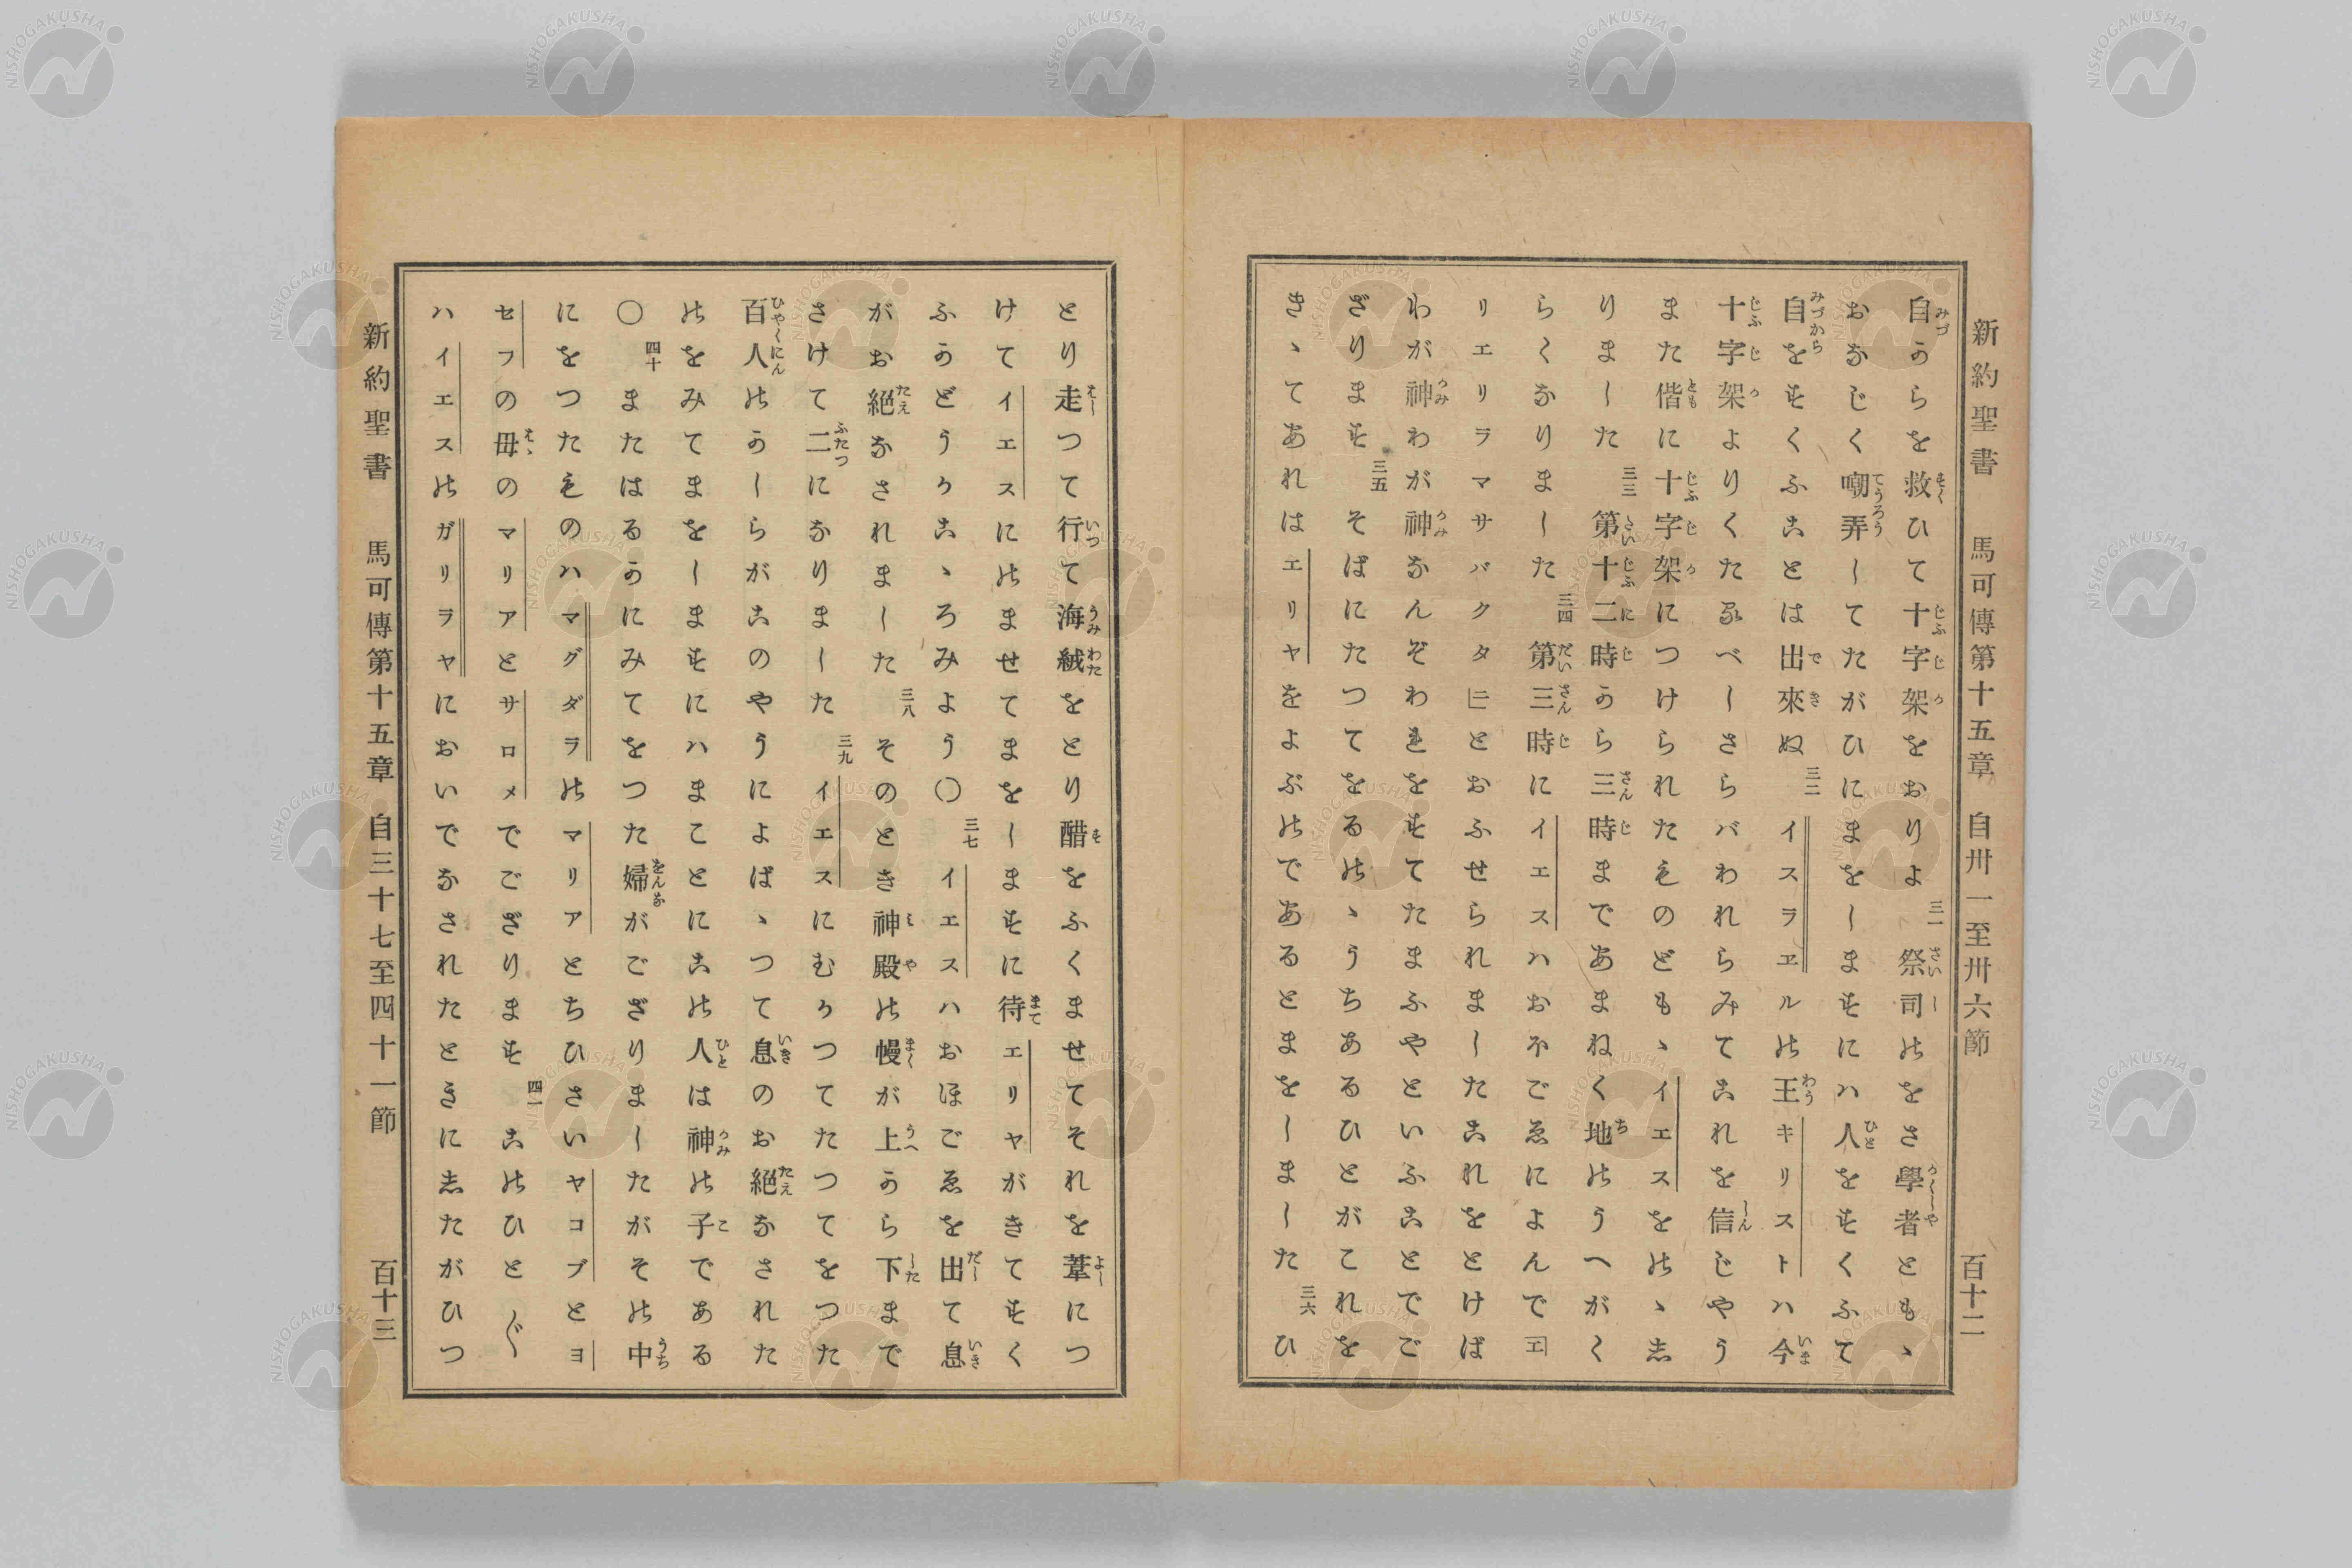 新約聖書 馬可傳第十五章 自卅一至卅六節 百十二
自からを救ひて十字架をおりよ 三一 祭司のをさ學者とも丶
おなじく嘲弄してたがひにまをしますにハ人をすくふて
自をすくふことは出來ぬ 三二 イスラヱルの王キリストハ今
十字架よりくたるべしさらバわれらみてこれを信じやう
また偕に十字架につけられたものども丶イエスをの丶志
りました 三三 第十二時から三時まであまねく地のうへがく
らくなりました 三四 第三時にイエスハおホごゑによんでエ
リエリラマサバクタニとおふせられましたこれをとけば
わが神わが神なんぞわれをすてたまふやといふことでご
ざります 三五 そばにたつてをるの丶うちあるひとがこれを
き丶てあれはエリヤをよぶのであるとまをしました 三六 ひ
とり走つて行て海絨をとり醋をふくませてそれを葦につ
けてイエスにのませてまをしますに待エリヤがきてすく
ふかどうかこ丶ろみよう〇 三七 イエスハおほごゑを出て息
がお絶なされました 三八 そのとき神殿の幔が上から下まで
さけて二になりました 三九 イエスにむかつてたつてをつた
百人のかしらがこのやうによば丶つて息のお絶なされた
のをみてまをしますにハまことにこの人は神の子である
〇 四十 またはるかにみてをつた婦がござりましたがその中
にをつたものハマグダラのマリアとちひさいヤコブとヨ
セフの母のマリアとサロメでござります 四一 このひと〴〵
ハイエスのガリラヤにおいでなされたときに志たがひつ
新約聖書 馬可傳第十五章 自三十七至四十一節 百十三